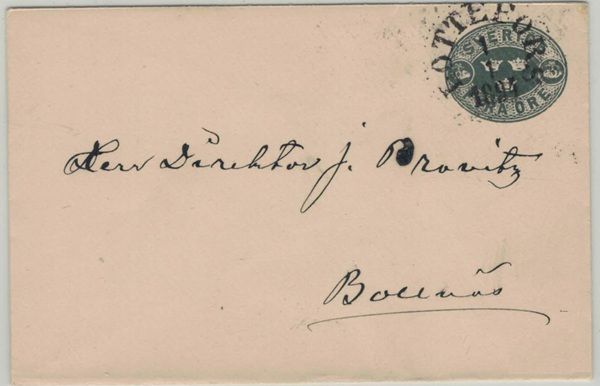 KOTTEFORS
1
1
SVERIGE
TVÅ ÖRE
Herr Direktor J. Brovitz
Bollnäs